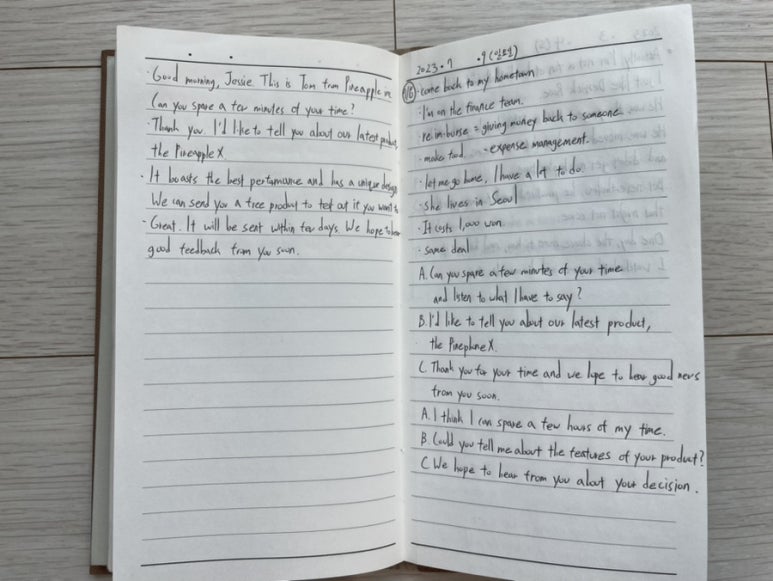 · Good morning, Jessie. This is Tom from Pineapple inc.
Can you spare a few minutes of your time?
· Thank you. I'd like to tell you about our latest product,
the Pineapple X.
· It boasts the best performance and has a unique design
We can send you a free product to test out if you want to
· Great. It will be sent within few days. We hope to hear
good feedback from you soon.
2023 · 7 · 9 (일요일)
116 · come back to my hometown
· I'm on the finance team.
· reimburse = giving money back to someone
· make food - expense management.
· let me go home, I have a lot to do.
· she lives in Seoul
· It costs 1,000 won
· same deal
A. Can you spare a few minutes of your time
and listen to what I have to say?
B. I'd like to tell you about our latest product,
the Pinephone X.
C. Thank you for your time and we hope to hear good news
from you soon.
A. I think I can spare a few hours of my time.
B. Could you tell me about the features of your product?
C. We hope to hear from you about your decision.